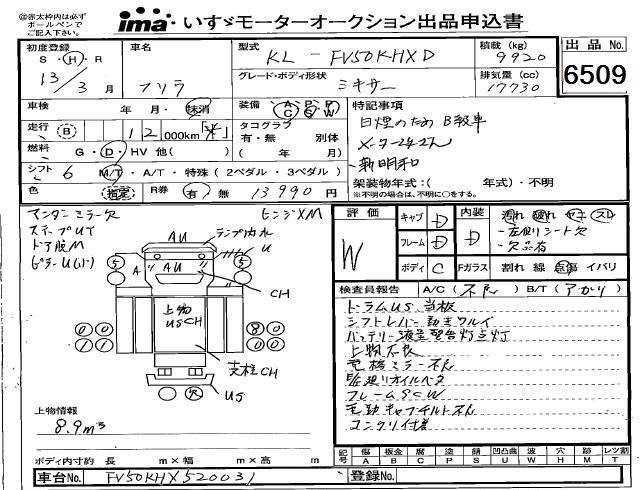 ※赤太枠内は必ず
ボールペンで
ご記入下さい。
ima いすゞモーターオークション出品申込書
初度登録
S・H・R
13/3月
車名
フソウ
型式
KL-FV50KHXD
グレード・ボディ形状
ミキサー
積載(kg)
9920
排気量(cc)
17730
出品No.
6509
車検 年・月・抹消
走行 B 12 000km
燃料 G・D・HV 他( )
シフト 6 M/T・A/T・特殊(2ペダル・3ペダル)
色
R券 有 無 13990円
装備 A P P C G W
タコグラフ
有・無 別体
( 年 月)
特記事項
B級車
新明和
架装物年式:( 年式)・不明
※不明の場合は、不明に○をする。
アンダーミラー欠
ステップUT
ドア脱M
ピラーU
ヒンジXM
ランプカバー
U
AU
A
AU
CH
5
5
上物
USCH
0 0
0 1
8 0
0 0
支柱CH
US
欠
上物情報
8.9m³
ボディ内寸約 長 m×幅 m×高 m
評価
W
キャブ D
フレーム D
ボディ C
内装 D
汚れ 破れ ヤキ スレ
欠品有
Fガラス 割れ 線 点傷 イバリ
検査員報告 A/C(不良) B/T(アガリ)
ドラムUS 当板
シフトレバー動きワルイ
バッテリー液量警告灯点灯
上物不良
電格ミラー不良
フレームSCW
電動キャブチルト不良
コンクリ付着
記号 傷A 板金B 腐C 塗P 錆S 凹凸曲U 波W 穴H 跡M レツ割T
車台No. FV50KHX520031
登録No.